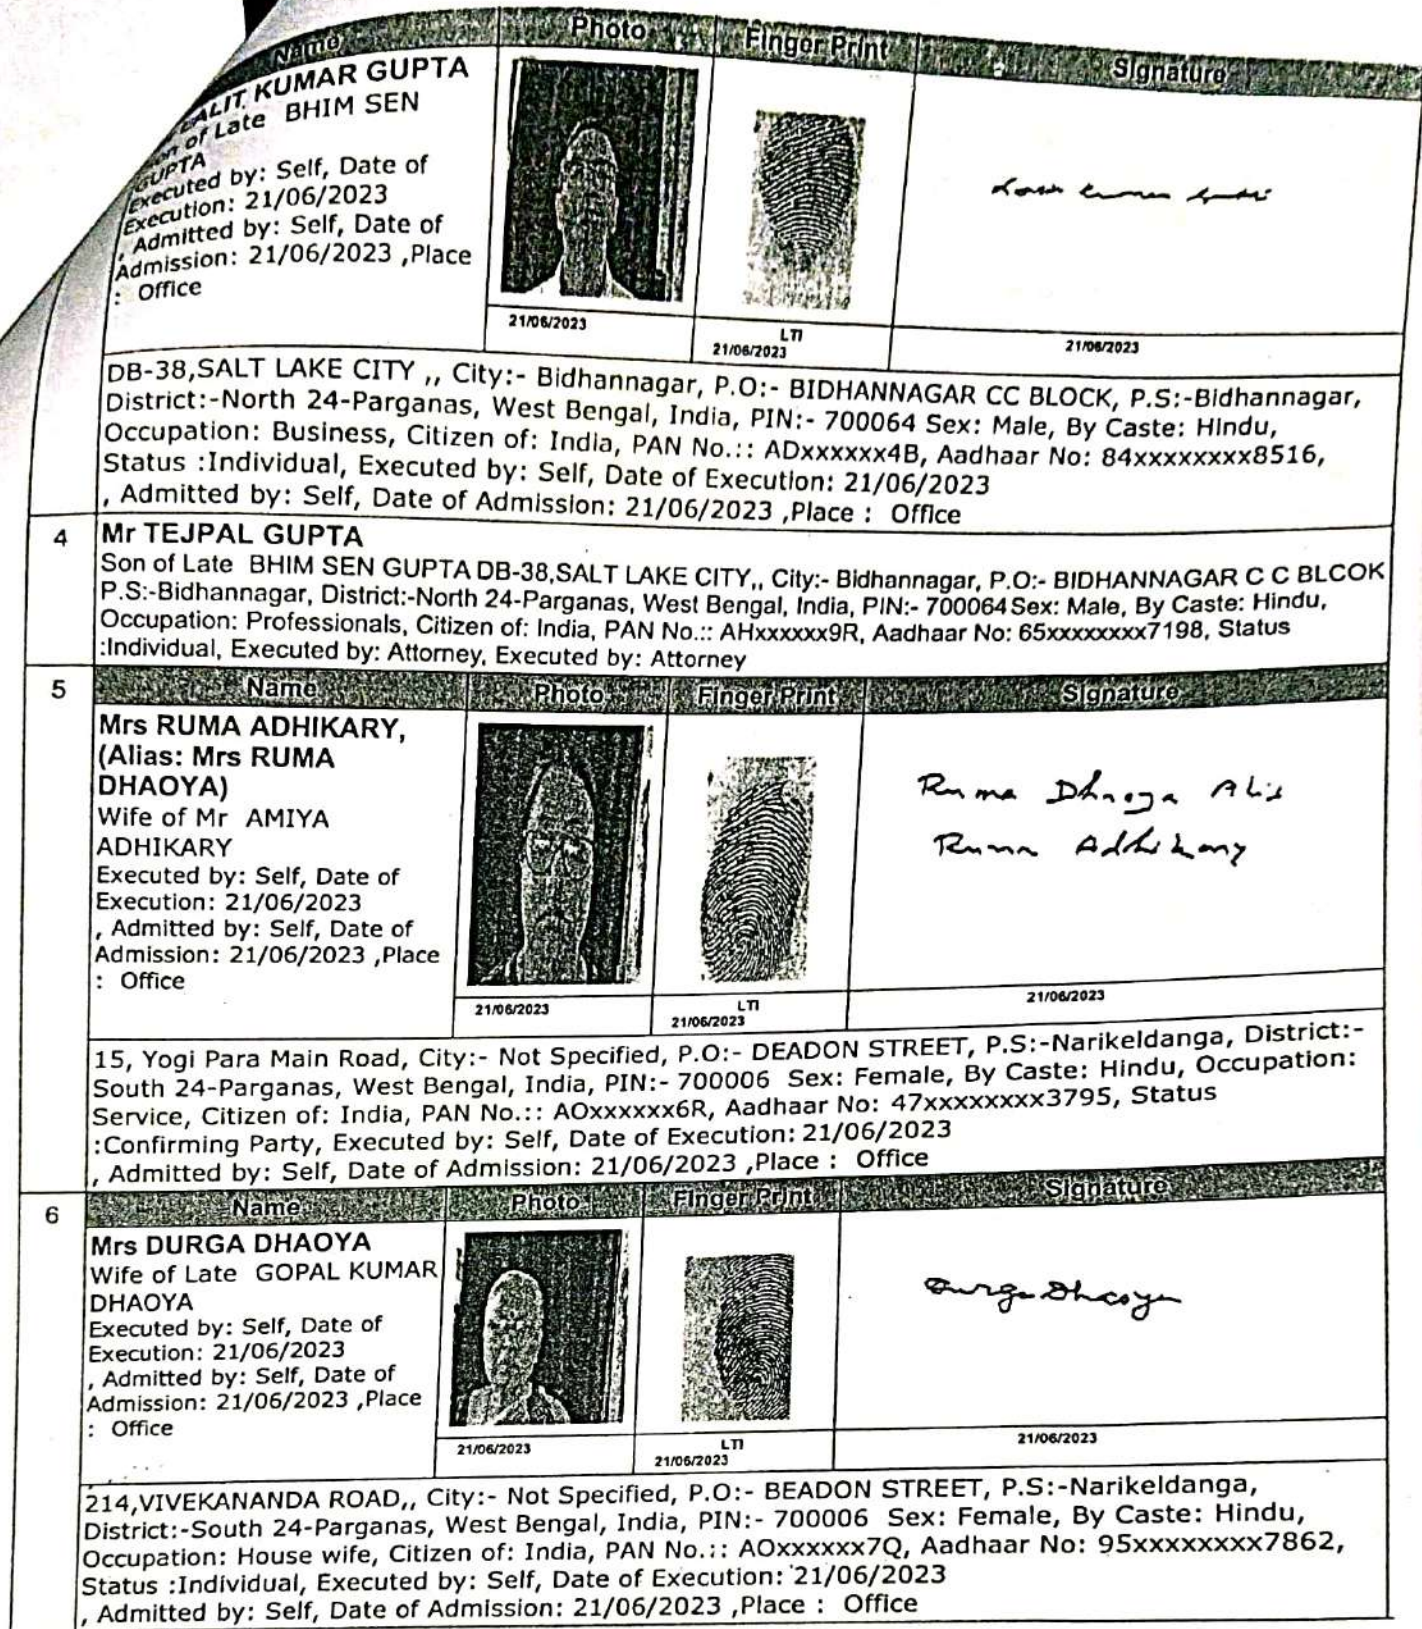 Name Photo Finger Print Signature
LALIT KUMAR GUPTA
Son of Late BHIM SEN
GUPTA
Executed by: Self, Date of
Execution: 21/06/2023
, Admitted by: Self, Date of
Admission: 21/06/2023 ,Place
: Office
21/06/2023
LTI
21/06/2023
21/06/2023
DB-38,SALT LAKE CITY ,, City:- Bidhannagar, P.O:- BIDHANNAGAR CC BLOCK, P.S:-Bidhannagar,
District:-North 24-Parganas, West Bengal, India, PIN:- 700064 Sex: Male, By Caste: Hindu,
Occupation: Business, Citizen of: India, PAN No.:: ADxxxxxx4B, Aadhaar No: 84xxxxxxxx8516,
Status :Individual, Executed by: Self, Date of Execution: 21/06/2023
, Admitted by: Self, Date of Admission: 21/06/2023 ,Place : Office
4 Mr TEJPAL GUPTA
Son of Late BHIM SEN GUPTA DB-38,SALT LAKE CITY,, City:- Bidhannagar, P.O:- BIDHANNAGAR C C BLCOK
P.S:-Bidhannagar, District:-North 24-Parganas, West Bengal, India, PIN:- 700064 Sex: Male, By Caste: Hindu,
Occupation: Professionals, Citizen of: India, PAN No.:: AHxxxxxx9R, Aadhaar No: 65xxxxxxxx7198, Status
:Individual, Executed by: Attorney, Executed by: Attorney
5 Name Photo Finger Print Signature
Mrs RUMA ADHIKARY,
(Alias: Mrs RUMA
DHAOYA)
Wife of Mr AMIYA
ADHIKARY
Executed by: Self, Date of
Execution: 21/06/2023
, Admitted by: Self, Date of
Admission: 21/06/2023 ,Place
: Office
Ruma Dhaoya Alis
Ruma Adhikary
21/06/2023
LTI
21/06/2023
21/06/2023
15, Yogi Para Main Road, City:- Not Specified, P.O:- DEADON STREET, P.S:-Narikeldanga, District:-
South 24-Parganas, West Bengal, India, PIN:- 700006 Sex: Female, By Caste: Hindu, Occupation:
Service, Citizen of: India, PAN No.:: AOxxxxxx6R, Aadhaar No: 47xxxxxxxx3795, Status
:Confirming Party, Executed by: Self, Date of Execution: 21/06/2023
, Admitted by: Self, Date of Admission: 21/06/2023 ,Place : Office
6 Name Photo Finger Print Signature
Mrs DURGA DHAOYA
Wife of Late GOPAL KUMAR
DHAOYA
Executed by: Self, Date of
Execution: 21/06/2023
, Admitted by: Self, Date of
Admission: 21/06/2023 ,Place
: Office
Durga Dhaoya
21/06/2023
LTI
21/06/2023
21/06/2023
214,VIVEKANANDA ROAD,, City:- Not Specified, P.O:- BEADON STREET, P.S:-Narikeldanga,
District:-South 24-Parganas, West Bengal, India, PIN:- 700006 Sex: Female, By Caste: Hindu,
Occupation: House wife, Citizen of: India, PAN No.:: AOxxxxxx7Q, Aadhaar No: 95xxxxxxxx7862,
Status :Individual, Executed by: Self, Date of Execution: 21/06/2023
, Admitted by: Self, Date of Admission: 21/06/2023 ,Place : Office